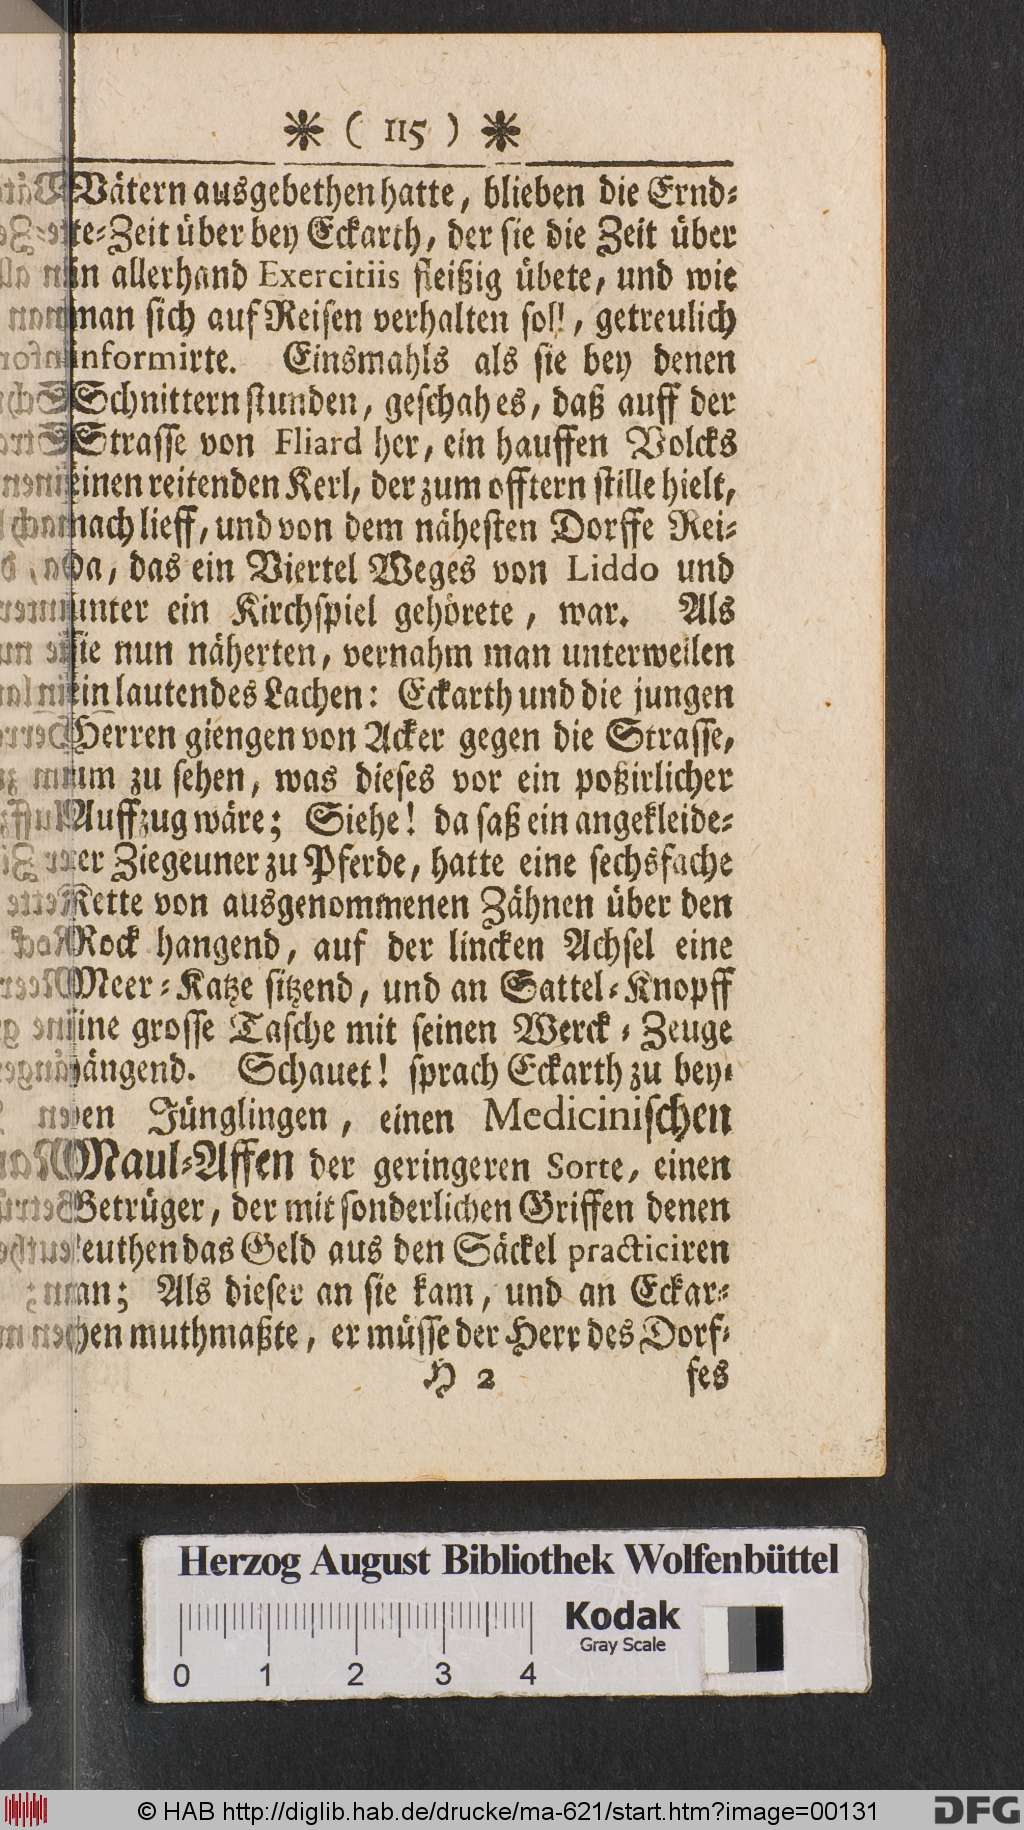 ( 115 )
Vätern ausgebethen hatte, blieben die Ernd-
te-Zeit über bey Eckarth, der sie die Zeit über
in allerhand Exercitiis fleißig übete, und wie
man sich auf Reisen verhalten soll, getreulich
informirte. Einsmahls als sie bey denen
Schnittern stunden, geschah es, daß auff der
Strasse von Fliard her, ein hauffen Volcks
einen reitenden Kerl, der zum offtern stille hielt,
nach lieff, und von dem nähesten Dorffe Rei-
da, das ein Viertel Weges von Liddo und
unter ein Kirchspiel gehörete, war. Als
sie nun näherten, vernahm man unterweilen
ein lautendes Lachen: Eckarth und die jungen
Herren giengen von Acker gegen die Strasse,
um zu sehen, was dieses vor ein poßirlicher
Auffzug wäre; Siehe! da saß ein angekleide-
er Ziegeuner zu Pferde, hatte eine sechsfache
Kette von ausgenommenen Zähnen über den
Rock hangend, auf der lincken Achsel eine
Meer-Katze sitzend, und an Sattel-Knopff
ine grosse Tasche mit seinen Werck-Zeuge
ängend. Schauet! sprach Eckarth zu bey-
en Jünglingen, einen Medicinischen
Maul-Affen der geringeren Sorte, einen
Betrüger, der mit sonderlichen Griffen denen
euthen das Geld aus den Säckel practiciren
an; Als dieser an sie kam, und an Eckar-
hen muthmaßte, er müsse der Herr des Dorf-
H 2 fes
Herzog August Bibliothek Wolfenbüttel
Kodak
Gray Scale
0 1 2 3 4
© HAB http://diglib.hab.de/drucke/ma-621/start.htm?image=00131
DFG